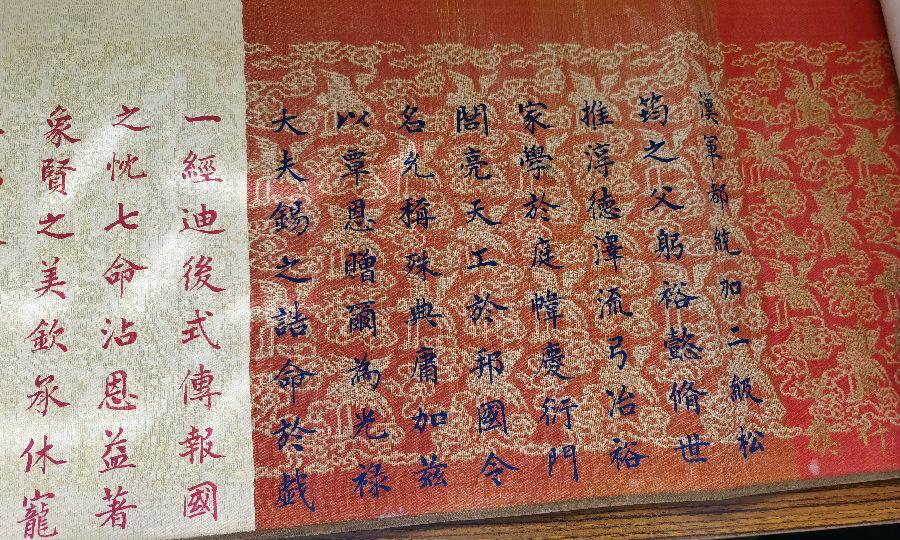 漢軍都統加二級松
筠之父躬裕懿脩世
推淳德澤流弓冶裕
家學於庭幃慶衍門
閭亮天工於邦國令
名允稱殊典庸加茲
以覃恩贈爾為光祿
大夫錫之誥命於戲
一經迪後式傳報國
之忱七命沾恩益著
象賢之美欽承休寵